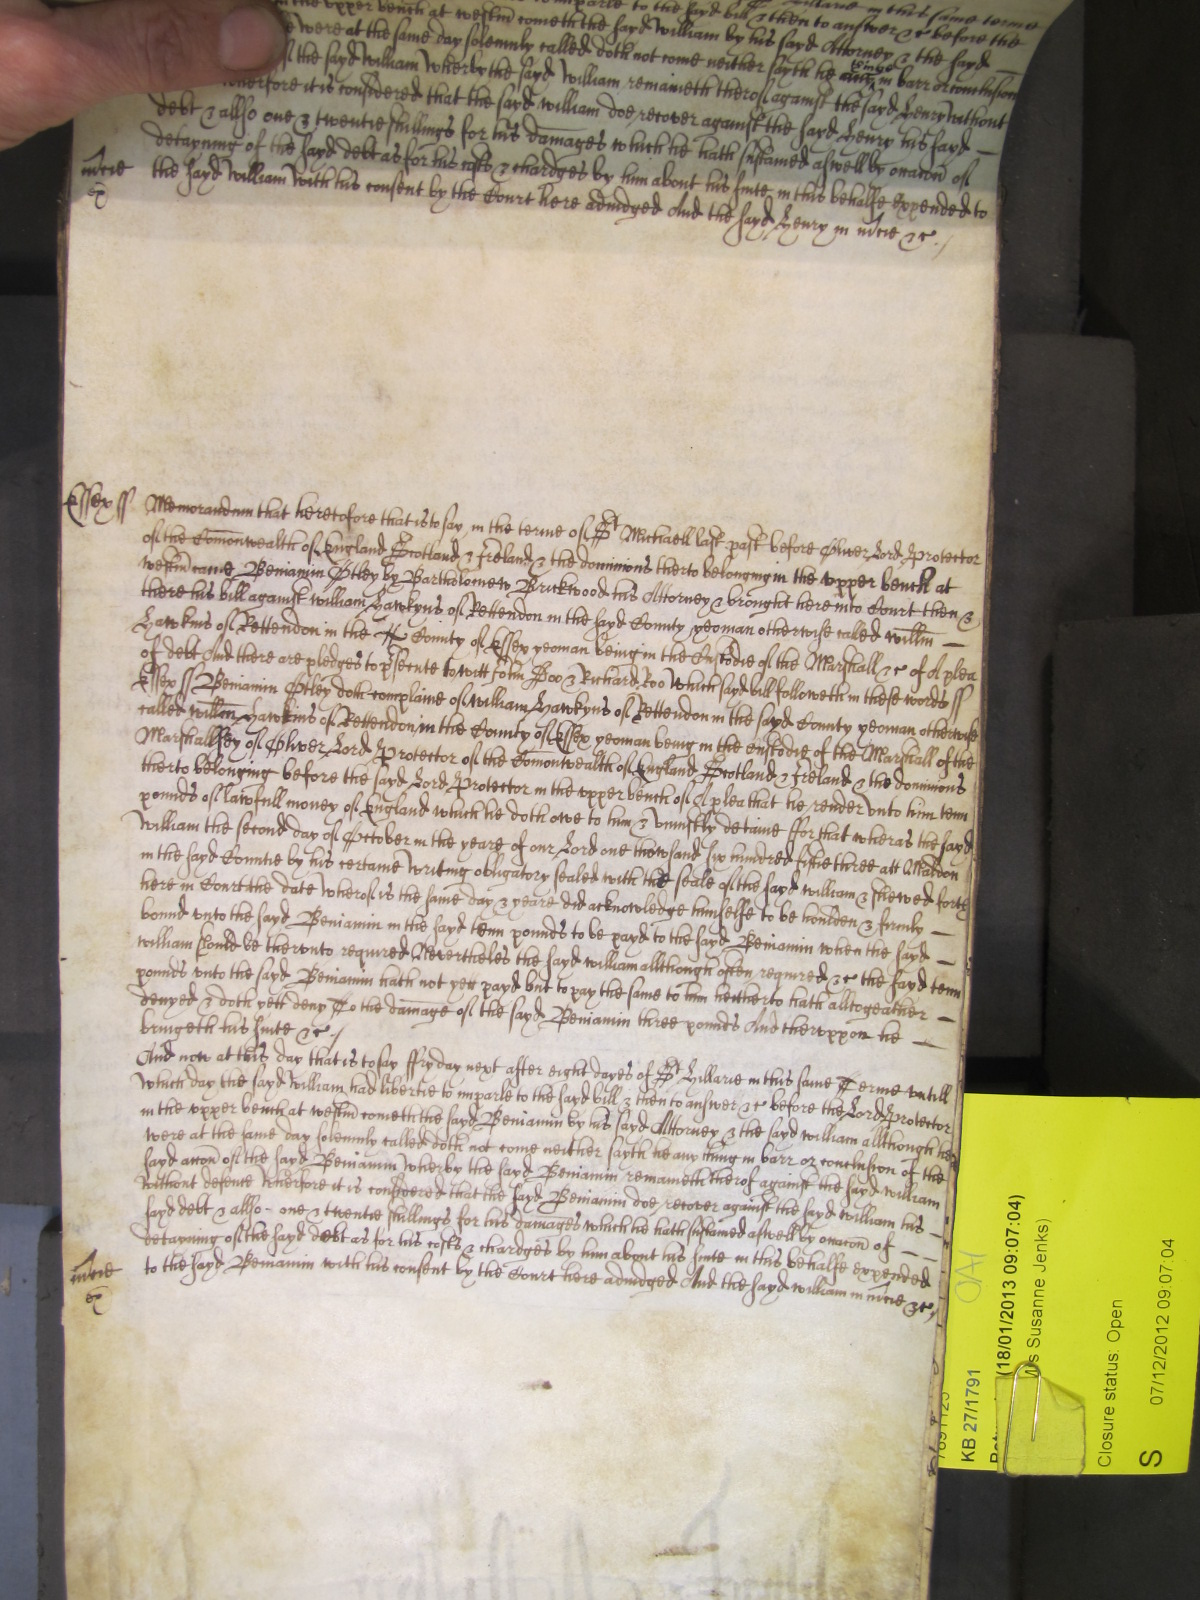 in the upper bench at westm cometh the sayd William by his sayd Attorney & the sayd
were at the same day solemnly called doth not come neither sayth he any thinge in barr or conclusion
of the sayd William Wherby the sayd William remaineth therof against the sayd Henry without
Wherfore it is considered that the sayd William doe recover against the sayd Henry his sayd
debt & allso one & twentie shillings for his damages which he hath sustained aswell by occacon of
detayning of the sayd debt as for his costs & chardges by him about his suite in this behalfe expended to
mcie the sayd William With his consent by the Court here adiudged And the sayd Henry in mcie &c.
Essex ss Memorandum that heretofore that is to say in the terme of St Michaell last past before Oliver Lord Protector
of the Comonwealth of England Scotland & Ireland & the dominions therto belonging in the upper bench at
westm came Beniamin Otley by Bartholomew Brickwood his Attorney & brought here into Court then &
there his bill against William Hawkyns of Rettendon in the sayd County yeoman otherwise called willm
Hawkins of Rettendon in the County of Essex yeoman being in the Custodie of the Marshall &c of A plea
of debt And there are pledges to psecute to witt John Doo & Richard Roo Which sayd bill followeth in these words ss
Essex ss Beniamin Otley doth complaine of William Hawkyns of Rettendon in the sayd County yeoman otherwise
called willm Hawkins of Rettendon in the County of Essex yeoman being in the custodie of the Marshall of the
Marshallsey of Oliver Lord Protector of the Comonwealth of England Scotland & Ireland & the dominions
therto belonging before the sayd Lord Protector in the upper bench of A plea that he render unto him tenn
pounds of lawfull money of England which he doth owe to him & uniustly detaine ffor that wheras the sayd
William the second day of October in the yeare of our Lord one thowsand six hundred fiftie three att Maldon
in the sayd Countie by his certaine Writing obligatory sealed with the seale of the sayd William & shewed forth
here in Court the date Wherof is the same day & yeare did acknowledge himselfe to be houlden & firmly
bound unto the sayd Beniamin in the sayd tenn pounds to be payd to the sayd Beniamin when the sayd
William should be therunto required Nevertheles the sayd William allthough often required &c the sayd tenn
pounds unto the sayd Beniamin hath not yett payd but to pay the same to him heitherto hath alltogeather
denyed & doth yett deny To the damage of the sayd Beniamin three pounds And theruppon he
bringeth his suite &c.
And now at this day that is to say ffryday next after eight dayes of St Hillarie in this same Terme untill
Which day the sayd William had libertie to imparle to the sayd bill & then to answer &c before the Lord Protector
in the upper bench at westm cometh the sayd Beniamin by his sayd Attorney & the sayd William allthough he
were at the same day solemnly called doth not come neither sayth he any thing in barr or conclusion of the
sayd accon of the sayd Beniamin Wherby the sayd Beniamin remaineth therof against the sayd William
without defence Wherfore it is considered that the sayd Beniamin doe recover against the sayd William his
sayd debt & allso one & twentie shillings for his damages which he hath sustained aswell by occacon of
detayning of the sayd debt as for his costs & chardges by him about his suite in this behalfe expended
mcie to the sayd Beniamin with his consent by the Court here adiudged And the sayd William in mcie &c
KB 27/1791
(18/01/2013 09:07:04)
s Susanne Jenks)
Closure status: Open
S
07/12/2012 09:07:04